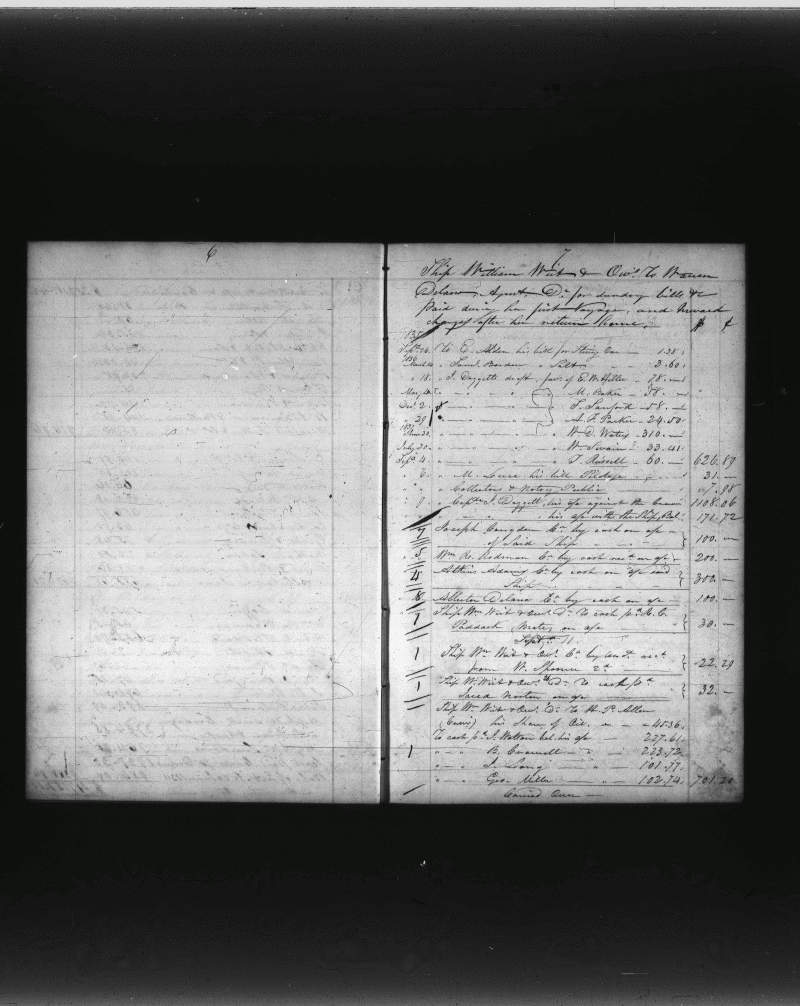 6
7
Ship William Wirt & Own.s To Warren
Delano, Agent Dr. for sundry bills &c
Paid during her first Voyage, and Inward
charges after her return home.
$ ¢
135
Sept. 26. To E. Alden his bill for 1.38
1836 March " Saml. Borden " 3.60
" 18. " J. Daggetts draft fav. of E. W. Miller 78.—
May " " " " M. Baker 58.—
Dec. 2. " " " S. Sanford 58.—
" 29 " " A. F. Parker 24.50
1837 30. " " W. D. Waters 310.—
July 20. " " Wm. Swain 33.41
Sept. 4. " " T. Russell 60.— 626.89
" 6. " M. Luce his bill Pilotage 31.—
" " Collectors & Notary Public 7.98
" 9. " Capt. J. Daggett, his a/c against the Owners 1108.06
" " his a/c with the Ship, Bal. 171.72
7 Joseph Congdon Cr. by cash on a/c
of Said Ship 100.—
5 Wm. R. Rodman Cr. by cash on a/c 200.—
4 Atkins Adams Cr. by cash on a/c said
Ship 300.—
8 Allerton Delano Cr. by cash on a/c 100.—
7 Ship Wm. Wirt & Own.s Dr. To cash pd. R. C.
Paddack, Mate, on a/c 30.—
Sept. 11.
1 Ship Wm. Wirt & Own.s Cr. by
from W. Spooner 2d 22.29
1 Ship W. Wirt & Own.s Dr. To cash pd.
Jared Norton on a/c 32.—
Ship Wm. Wirt & Own.s Dr. To H. P. Allen
his Share of Oil 45.36
To cash pd. J. bal. his a/c 227.61
1 " " B. 223.72
" " J. Long " 101.77
" " Geo. " 102.74 701.20
Carried Over —